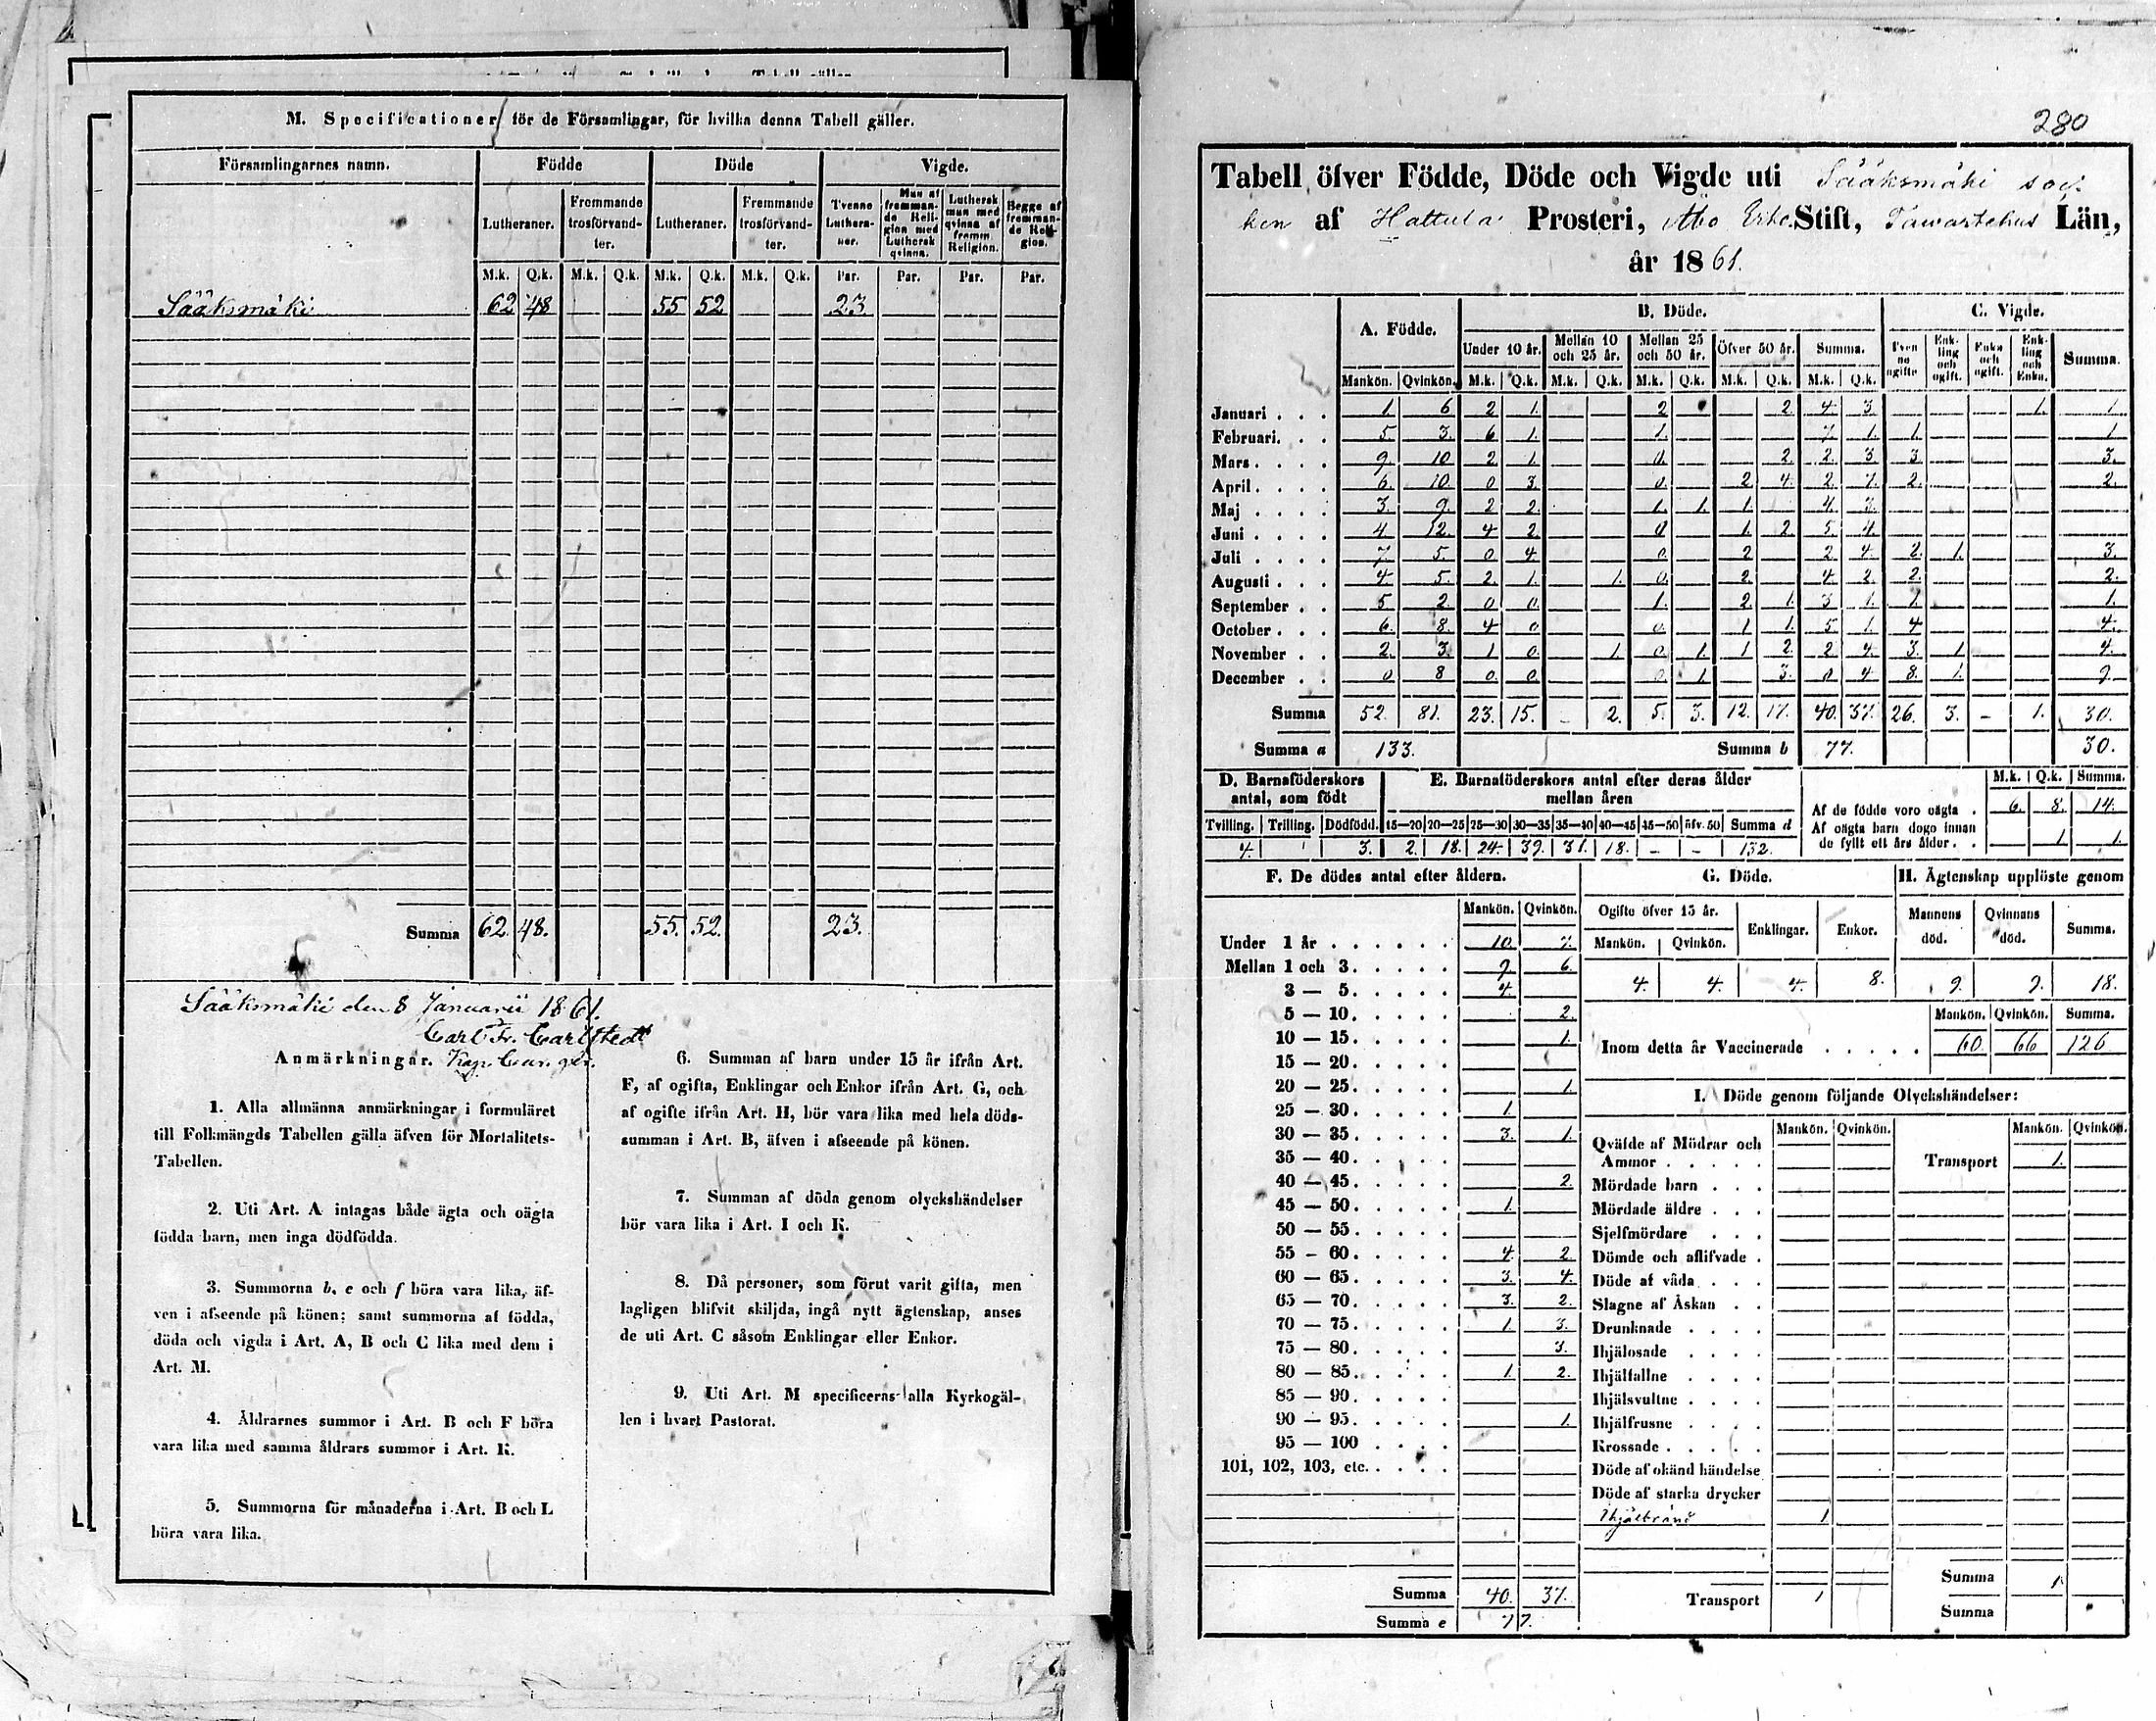 M. Specificationer för de Församlingar, för hvilka denna Tabell gäller.
Församlingarnes namn. Födde Döde Vigde.
Lutheraner. Fremmande trosförvandter. Lutheraner. Fremmande trosförvandter. Tvenne Lutheraner. Man af fremmande Religion med Luthersk qvinna. Luthersk man med qvinna af fremm. Religion. Begge af fremmande Religion.
M.k. Q.k. M.k. Q.k. M.k. Q.k. M.k. Q.k. Par. Par. Par. Par.
Sääksmäki 62 48 55 52 23
Summa 62. 48. 55. 52. 23.
Sääksmäki den 8 Januarii 1861.
Carl Fr. Carlstedt
Anmärkningar.
1. Alla allmänna anmärkningar i formuläret
till Folkmängds Tabellen gälla äfven för Mortalitets-
Tabellen.
2. Uti Art. A intagas både ägta och oägta
födda barn, men inga dödfödda.
3. Summorna b, e och f böra vara lika, äf-
ven i afseende på könen; samt summorna af födda,
döda och vigda i Art. A, B och C lika med dem i
Art. M.
4. Åldrarnes summor i Art. B och F böra
vara lika med samma åldrars summor i Art. K.
5. Summorna för månaderna i Art. B och L
böra vara lika.
6. Summan af barn under 15 år ifrån Art.
F, af ogifta, Enklingar och Enkor ifrån Art. G, och
af ogifte ifrån Art. H, bör vara lika med hela döds-
summan i Art. B, äfven i afseende på könen.
7. Summan af döda genom olyckshändelser
bör vara lika i Art. I och K.
8. Då personer, som förut varit gifta, men
lagligen blifvit skiljda, ingå nytt ägtenskap, anses
de uti Art. C såsom Enklingar eller Enkor.
9. Uti Art. M specificeras alla Kyrkogäl-
len i hvart Pastorat.
280
Tabell öfver Födde, Döde och Vigde uti Sääksmäki soc-
ken af Hattula Prosteri, Åbo Erke Stift, Tawastehus Län,
år 1861.
A. Födde. B. Döde. C. Vigde.
Under 10 år. Mellan 10 och 25 år. Mellan 25 och 50 år. Öfver 50 år. Summa. Tvenne ogifte Enkling och ogift. Enka och ogift. Enkling och Enka. Summa.
Mankön. Qvinkön. M.k. Q.k. M.k. Q.k. M.k. Q.k. M.k. Q.k. M.k. Q.k.
Januari . . . 1 6 2 1. 2 2. 4 3. 1. 1.
Februari. . . 5. 3. 6 1. 1. 7. 1. 1. 1
Mars . . . . 9. 10 2. 1. 0. 2. 2. 3 3. 3.
April . . . . 6. 10. 0 3. 0. 2 4. 2. 7. 2. 2.
Maj . . . . 3. 9. 2 2. 1. 1. 1. 4. 3.
Juni . . . . 4 12. 4 2. 0 1. 2. 5. 4.
Juli . . . . 7. 5. 0 4. 0. 2 2 4. 2. 1. 3.
Augusti . . . 4 5. 2. 1. 1. 0. 2. 4 2. 2. 2.
September . . 5 2. 0 0. 1. 2. 1. 3 1. 1. 1.
October . . . 6. 8. 4 0 0. 1 1. 5. 1. 4 4.
November . . 2. 3. 1 0. 1. 0. 1. 1 2. 2 4. 3. 1. 4.
December . . 0 8 0. 0. 0. 1 3. 0 4 8. 1. 9.
Summa 52. 81. 23. 15. - 2. 5. 3. 12. 17. 40. 37. 26. 3. - 1. 30.
Summa a 133. Summa b 77. 30.
D. Barnaföderskors antal, som födt
Tvilling. Trilling. Dödfödd.
4. 3.
E. Barnaföderskors antal efter deras ålder mellan åren
15—20 20—25 25—30 30—35 35—40 40—45 45—50 öfv. 50 Summa d
2. 18. 24. 39. 31. 18. - - 132.
M.k. Q.k. Summa.
Af de födde voro oägta . 6. 8. 14.
Af oägta barn dogo innan
de fyllt ett års ålder. . 1. 1.
F. De dödes antal efter åldern.
Mankön. Qvinkön.
Under 1 år . . . . . . 10. 7.
Mellan 1 och 3. . . . . 9. 6.
3 — 5. . . . . 4.
5 — 10. . . . . 2.
10 — 15. . . . . 1.
15 — 20. . . . .
20 — 25. . . . . 1.
25 — 30. . . . . 1.
30 — 35. . . . . 3. 1.
35 — 40. . . . .
40 — 45. . . . . 2.
45 — 50. . . . . 1.
50 — 55. . . . .
55 - 60. . . . . 4. 2.
60 — 65. . . . . 3. 4.
65 — 70. . . . . 3. 2.
70 — 75. . . . . 1. 3.
75 — 80. . . . . 3.
80 — 85. . . . . 1. 2.
85 — 90. . . . .
90 — 95. . . . . 1.
95 — 100 . . . .
101, 102, 103, etc. . . . .
Summa 40. 37.
Summa e 77.
G. Döde.
Ogifte öfver 15 år. Enklingar. Enkor.
Mankön. Qvinkön.
4. 4. 4. 8.
H. Ägtenskap upplöste genom
Mannens död. Qvinnans död. Summa.
9. 9. 18.
Mankön. Qvinkön. Summa.
Inom detta år Vaccinerade . . . . . 60. 66 126
I. Döde genom följande Olyckshändelser:
Mankön. Qvinkön. Mankön. Qvinkön.
Qväfde af Mödrar och
Ammor . . . . . Transport 1.
Mördade barn . . .
Mördade äldre . . .
Sjelfmördare . . .
Dömde och aflifvade .
Döde af våda . . .
Slagne af Åskan . .
Drunknade . . . .
Ihjälosade . . . .
Ihjälfallne . . . .
Ihjälsvultne . . . .
Ihjälfrusne . . . .
Krossade . . . . .
Döde af okänd händelse
Döde af starka drycker
Ihjälbränd 1
Summa 1.
Transport 1
Summa